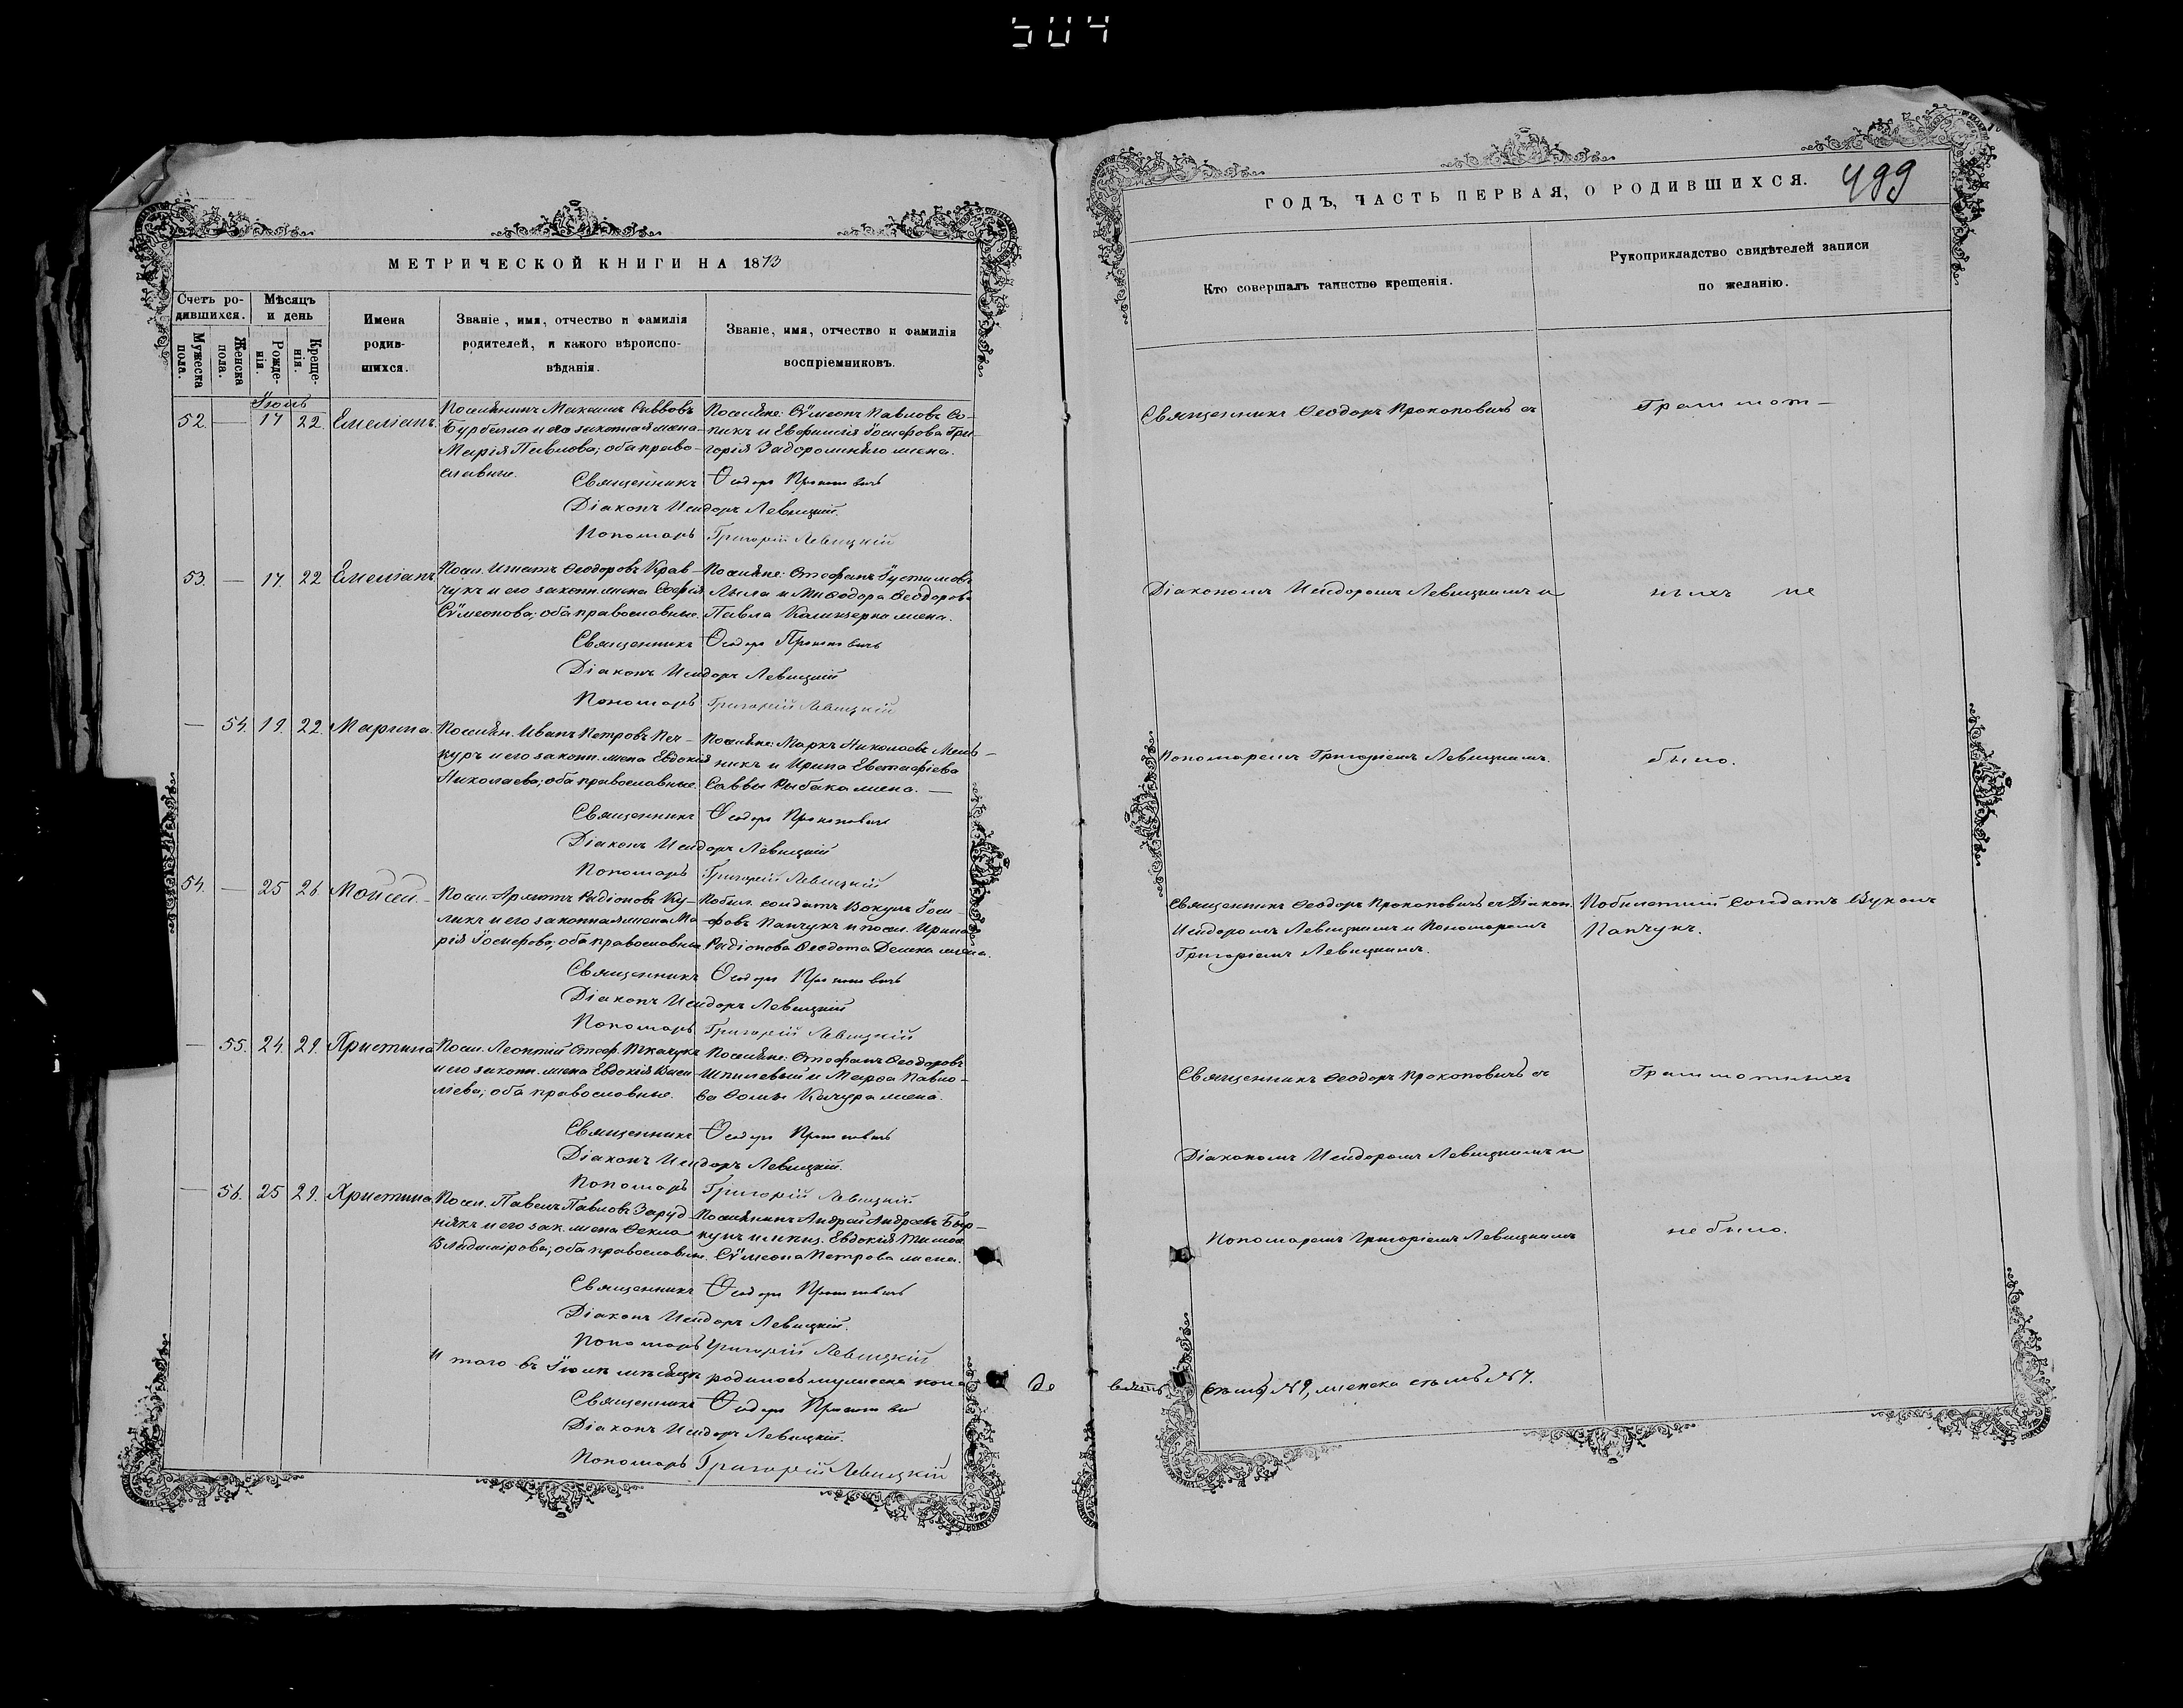 504
МЕТРИЧЕСКОЙ КНИГИ НА 1873
Счетъ ро-
дившихся.
Мужеска
пола.
Женска
пола.
Мѣсяцъ
и день
Рожде-
нія.
Креще-
нія.
Имена
родив-
шихся.
Званіе, имя, отчество и фамилія
родителей, и какого вѣроиспо-
вѣданія.
Званіе, имя, отчество и фамилія
воспріемниковъ.
Іюль
52. — 17 22. Емеліанъ.
Поселянинъ Максимъ Саввовъ
и его законная жена
Марія Павлова; оба право-
славные.
Поселяне: Сѷмеонъ Павловъ
и Евфимія Іосифова Гри-
горія жена.
Священникъ Ѳеодоръ Прокоповичъ
Діаконъ Исидоръ Левицкій.
Пономарь Григорій Левицкій
53. — 17. 22 Емеліанъ.
Посел. Игнатъ Ѳеодоровъ Крав-
чукъ и его законн. жена Софія
Сѷмеонова; оба православные.
Поселяне: Стефанъ Іустиновъ
и Миѳодора Ѳеодорова
Павла жена.
Священникъ Ѳеодоръ Прокоповичъ
Діаконъ Исидоръ Левицкій
Пономарь Григорій Левицкій
— 54. 19. 22. Марина.
Поселян. Иванъ Петровъ
и его законн. жена Евдокія
Николаева; оба православные.
Поселяне: Маркъ Николаевъ Мель-
никъ и Ирина Евстафіева
Саввы Рыбака жена. —
Священникъ Ѳеодоръ Прокоповичъ
Діаконъ Исидоръ Левицкій
Пономарь Григорій Левицкій
54. — 25 26. Мойсей. —
Посел. Родіоновъ Ку-
ликъ и его законная жена Ма-
рія Іосифова; оба православные
солдатъ Вокулъ Іоси-
фовъ Панчукъ и посел. Ирина
Родіонова Ѳеодота жена.
Священникъ Ѳеодоръ Прокоповичъ
Діаконъ Исидоръ Левицкій
Пономарь Григорій Левицкій
— 55. 24. 29. Христина
Посел. Леонтій Стеф. Ткачукъ
и его законн. жена Евдокія Васи-
ліева; оба православные.
Поселяне: Стефанъ Ѳеодоровъ
Шпилевый и Марѳа Павло-
ва Ѳомы Качура жена.
Священникъ Ѳеодоръ Прокоповичъ
Діаконъ Исидоръ Левицкій.
Пономарь Григорій Левицкій
— 56. 25 29. Христина
Посел. Павелъ Павловъ Заруд-
някъ и его зак. жена Ѳекла
Владимірова; оба православн.
Поселянинъ Андрей Андреевъ
Евдокія
Сѷмеона Петрова жена.
Священникъ Ѳеодоръ Прокоповичъ
Діаконъ Исидоръ Левицкій.
Пономарь Григорій Левицкій
И того въ Іюлѣ мѣсяцѣ родилось мужеска пола де
Священникъ Ѳеодоръ Прокоповичъ
Діаконъ Исидоръ Левицкій.
Пономарь Григорій Левицкій
ГОДЪ, ЧАСТЬ ПЕРВАЯ, О РОДИВШИХСЯ. 499
Кто совершалъ таинство крещенія.
Рукоприкладство свидѣтелей записи
по желанію.
Священникъ Ѳеодоръ Прокоповичъ съ
Граммот-
Діакономъ Исидоромъ Левицкимъ и
ныхъ не
Пономаремъ Григоріемъ Левицкимъ.
было.
Священникъ Ѳеодоръ Прокоповичъ съ Діакон.
Исидоромъ Левицкимъ и Пономаремъ
Григоріемъ Левицкимъ.
солдатъ Вуколъ
Панчукъ.
Священникъ Ѳеодоръ Прокоповичъ съ
Граммотныхъ
Діакономъ Исидоромъ Левицкимъ и
Пономаремъ Григоріемъ Левицкимъ
не было.
вять №9, женска семь №7.